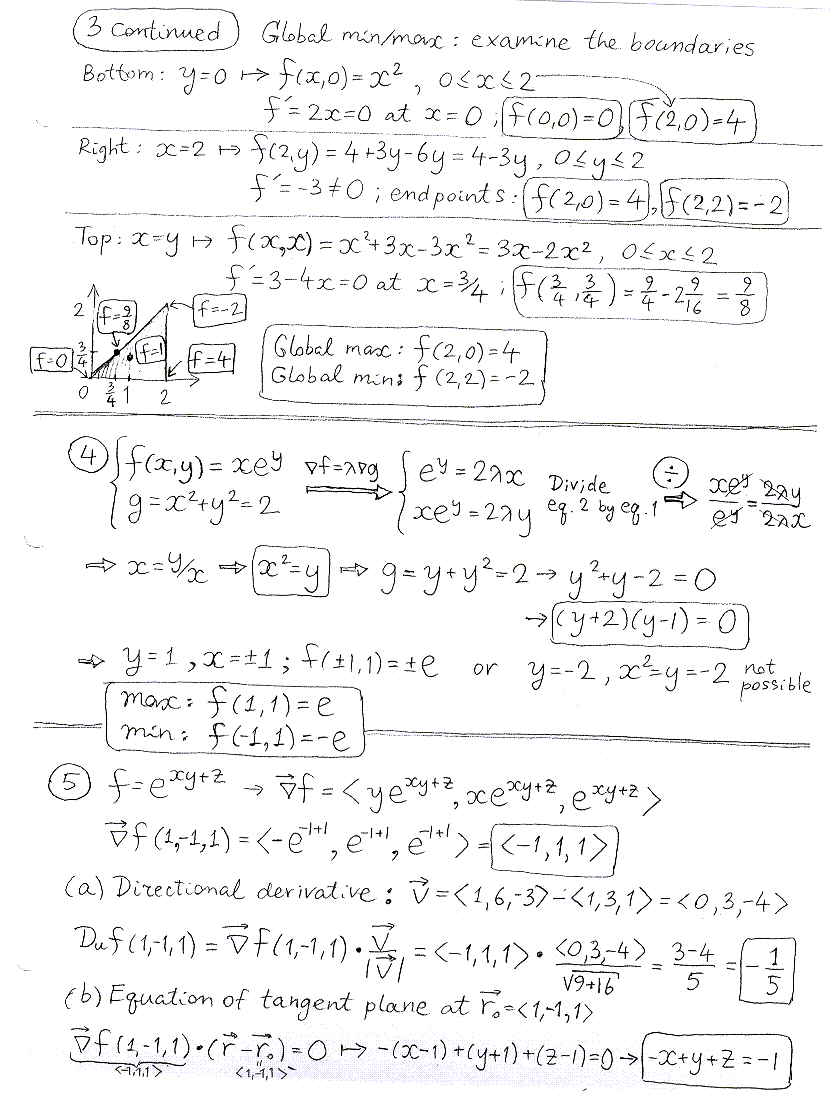 3 continued Global min/max: examine the boundaries
Bottom: y=0 ↦ f(x,0)=x², 0≤x≤2
f′=2x=0 at x=0; f(0,0)=0, f(2,0)=4
Right: x=2 ↦ f(2,y)=4+3y-6y=4-3y, 0≤y≤2
f′=-3≠0; endpoints: f(2,0)=4, f(2,2)=-2
Top: x=y ↦ f(x,x)=x²+3x-3x²=3x-2x², 0≤x≤2
f′=3-4x=0 at x=3/4; f(3/4,3/4)=9/4-2 9/16=9/8
2 f=9/8 f=-2
f=0 3/4 f=1 f=4
0 3/4 1 2
Global max: f(2,0)=4
Global min: f(2,2)=-2
4 { f(x,y)=xe^y ∇f=λ∇g ⇒ { e^y=2λx Divide ÷ ⇒ xe^y/e^y=2λy/2λx
g=x²+y²=2 xe^y=2λy eq. 2 by eq. 1
⇒ x=y/x ⇒ x²=y ⇒ g=y+y²=2 → y²+y-2=0
→ (y+2)(y-1)=0
⇒ y=1, x=±1; f(±1,1)=±e or y=-2, x²=y=-2 not possible
max: f(1,1)=e
min: f(-1,1)=-e
5 f=e^(xy+z) → ∇⃗f=<ye^(xy+z), xe^(xy+z), e^(xy+z)>
∇⃗f(1,-1,1)=<-e^(-1+1), e^(-1+1), e^(-1+1)>=<-1,1,1>
(a) Directional derivative: v⃗=<1,6,-3>-<1,3,1>=<0,3,-4>
Duf(1,-1,1)=∇⃗f(1,-1,1)•v⃗/|v⃗|=<-1,1,1>•<0,3,-4>/√9+16=3-4/5=-1/5
(b) Equation of tangent plane at r⃗₀=<1,-1,1>
∇⃗f(1,-1,1)•(r⃗-r⃗₀)=0 ↦ -(x-1)+(y+1)+(z-1)=0 → -x+y+z=-1
<-1,1,1> <1,-1,1>